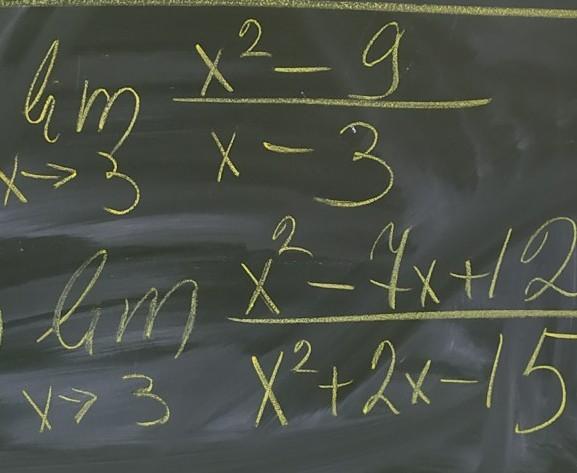 lim x→3 (x² - 9)/(x - 3)
lim x→3 (x² - 7x + 12)/(x² + 2x - 15)